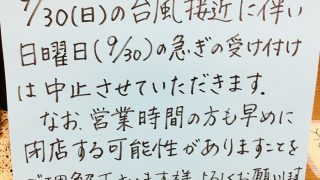 9/30(日)の台風接近に伴い
日曜日(9/30)の急ぎの受け付け
は中止させていただきます.
なお、営業時間の方も早めに
閉店する可能性がありますことを
ご理解下さいます様よろしくお願います